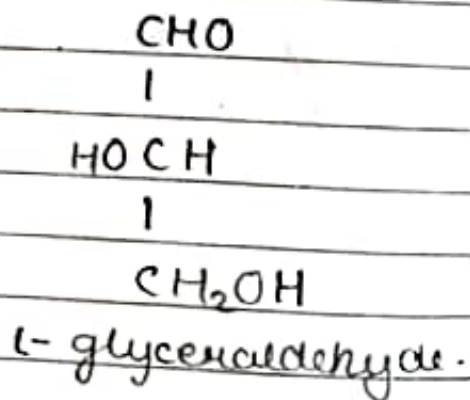 CHO
|
HO C H
|
CH₂OH
L- glyceraldehyde.